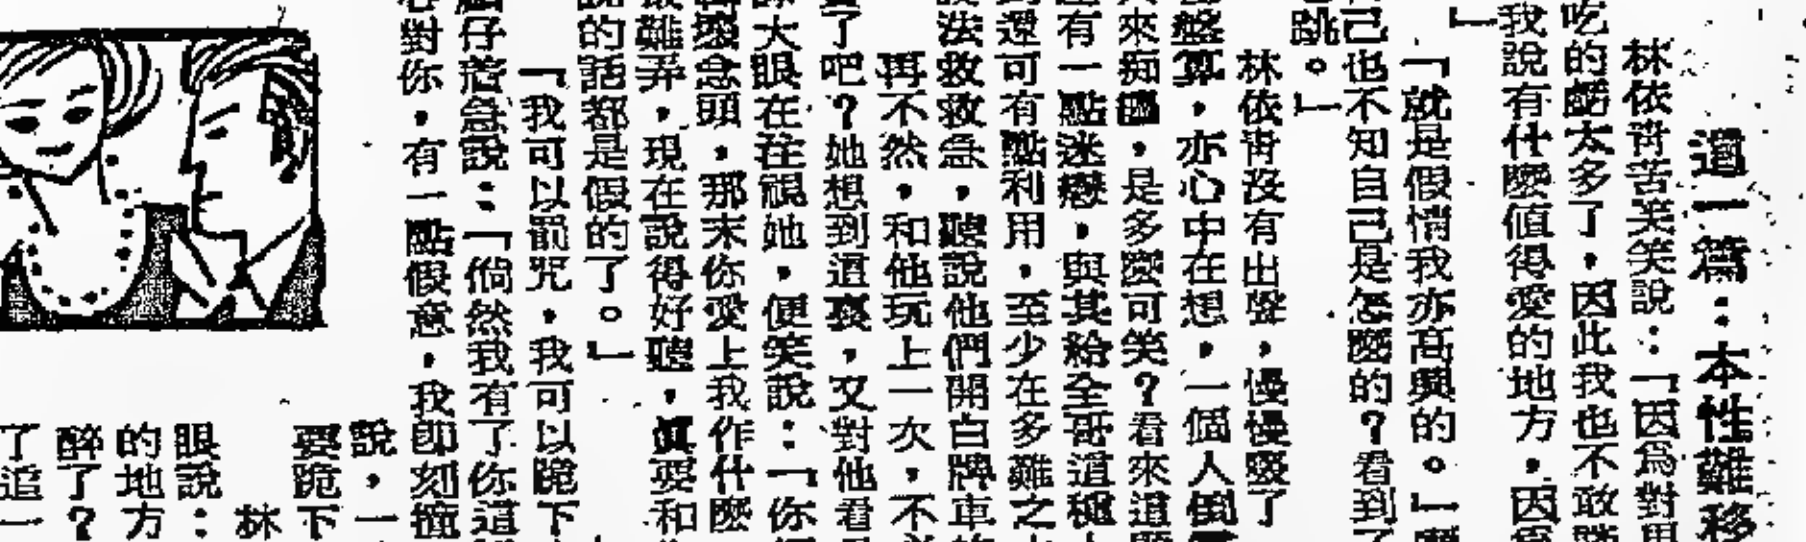 這一篇：本性難移
林依靑苦笑笑說：「因爲對
吃的虧太多了，因此我也不敢
我說有什麼值得愛的地方，因
」
「就是假情我亦高興的。」
己也不知自己是怎麼的？看到
跳。」
林依靑沒有出聲，慢慢吸了
盤算，亦心中在想，一個人
來痴纏，是多麼可笑？看來這
有一點迷戀，與其給全哥這種
還可有點利用，至少在多難之
法救救急，聽說他們開白牌車
再不然，和他玩上一次，不
了吧？她想到這裏，又對他看
大眼在注視她，便笑說：「你
壞念頭，那末你愛上我作什麼
難弄，現在說得好聽，眞要和
的話都是假的了。」
「我可以罰咒，我可以跪下
仔着急說：「倘然我有了你這
對你，有一點假意，我卽刻撞
說，一
要跪下
林
眼說：
的地方
醉了？
了這一